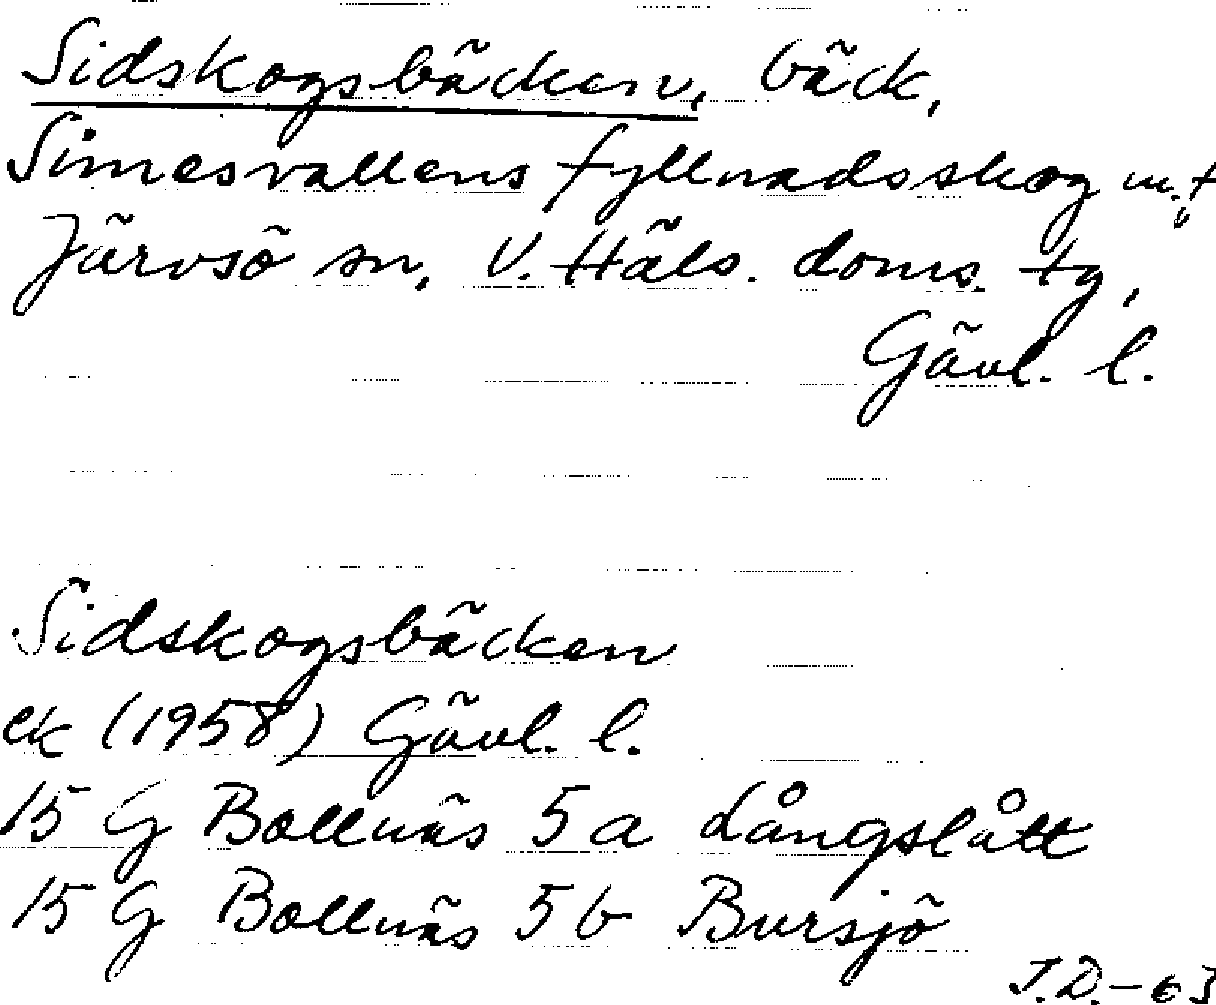 Sidskogsbäcken, bäck,
Simesvallens fyllnadsskog m.fl.
Järvsö sn, V. Häls. doms. tg,
Gävl. l.
Sidskogsbäcken
ek (1958) Gävl. l.
15 G Bollnäs 5 a Långslått
15 G Bollnäs 5 b Bursjö
J.D.-63